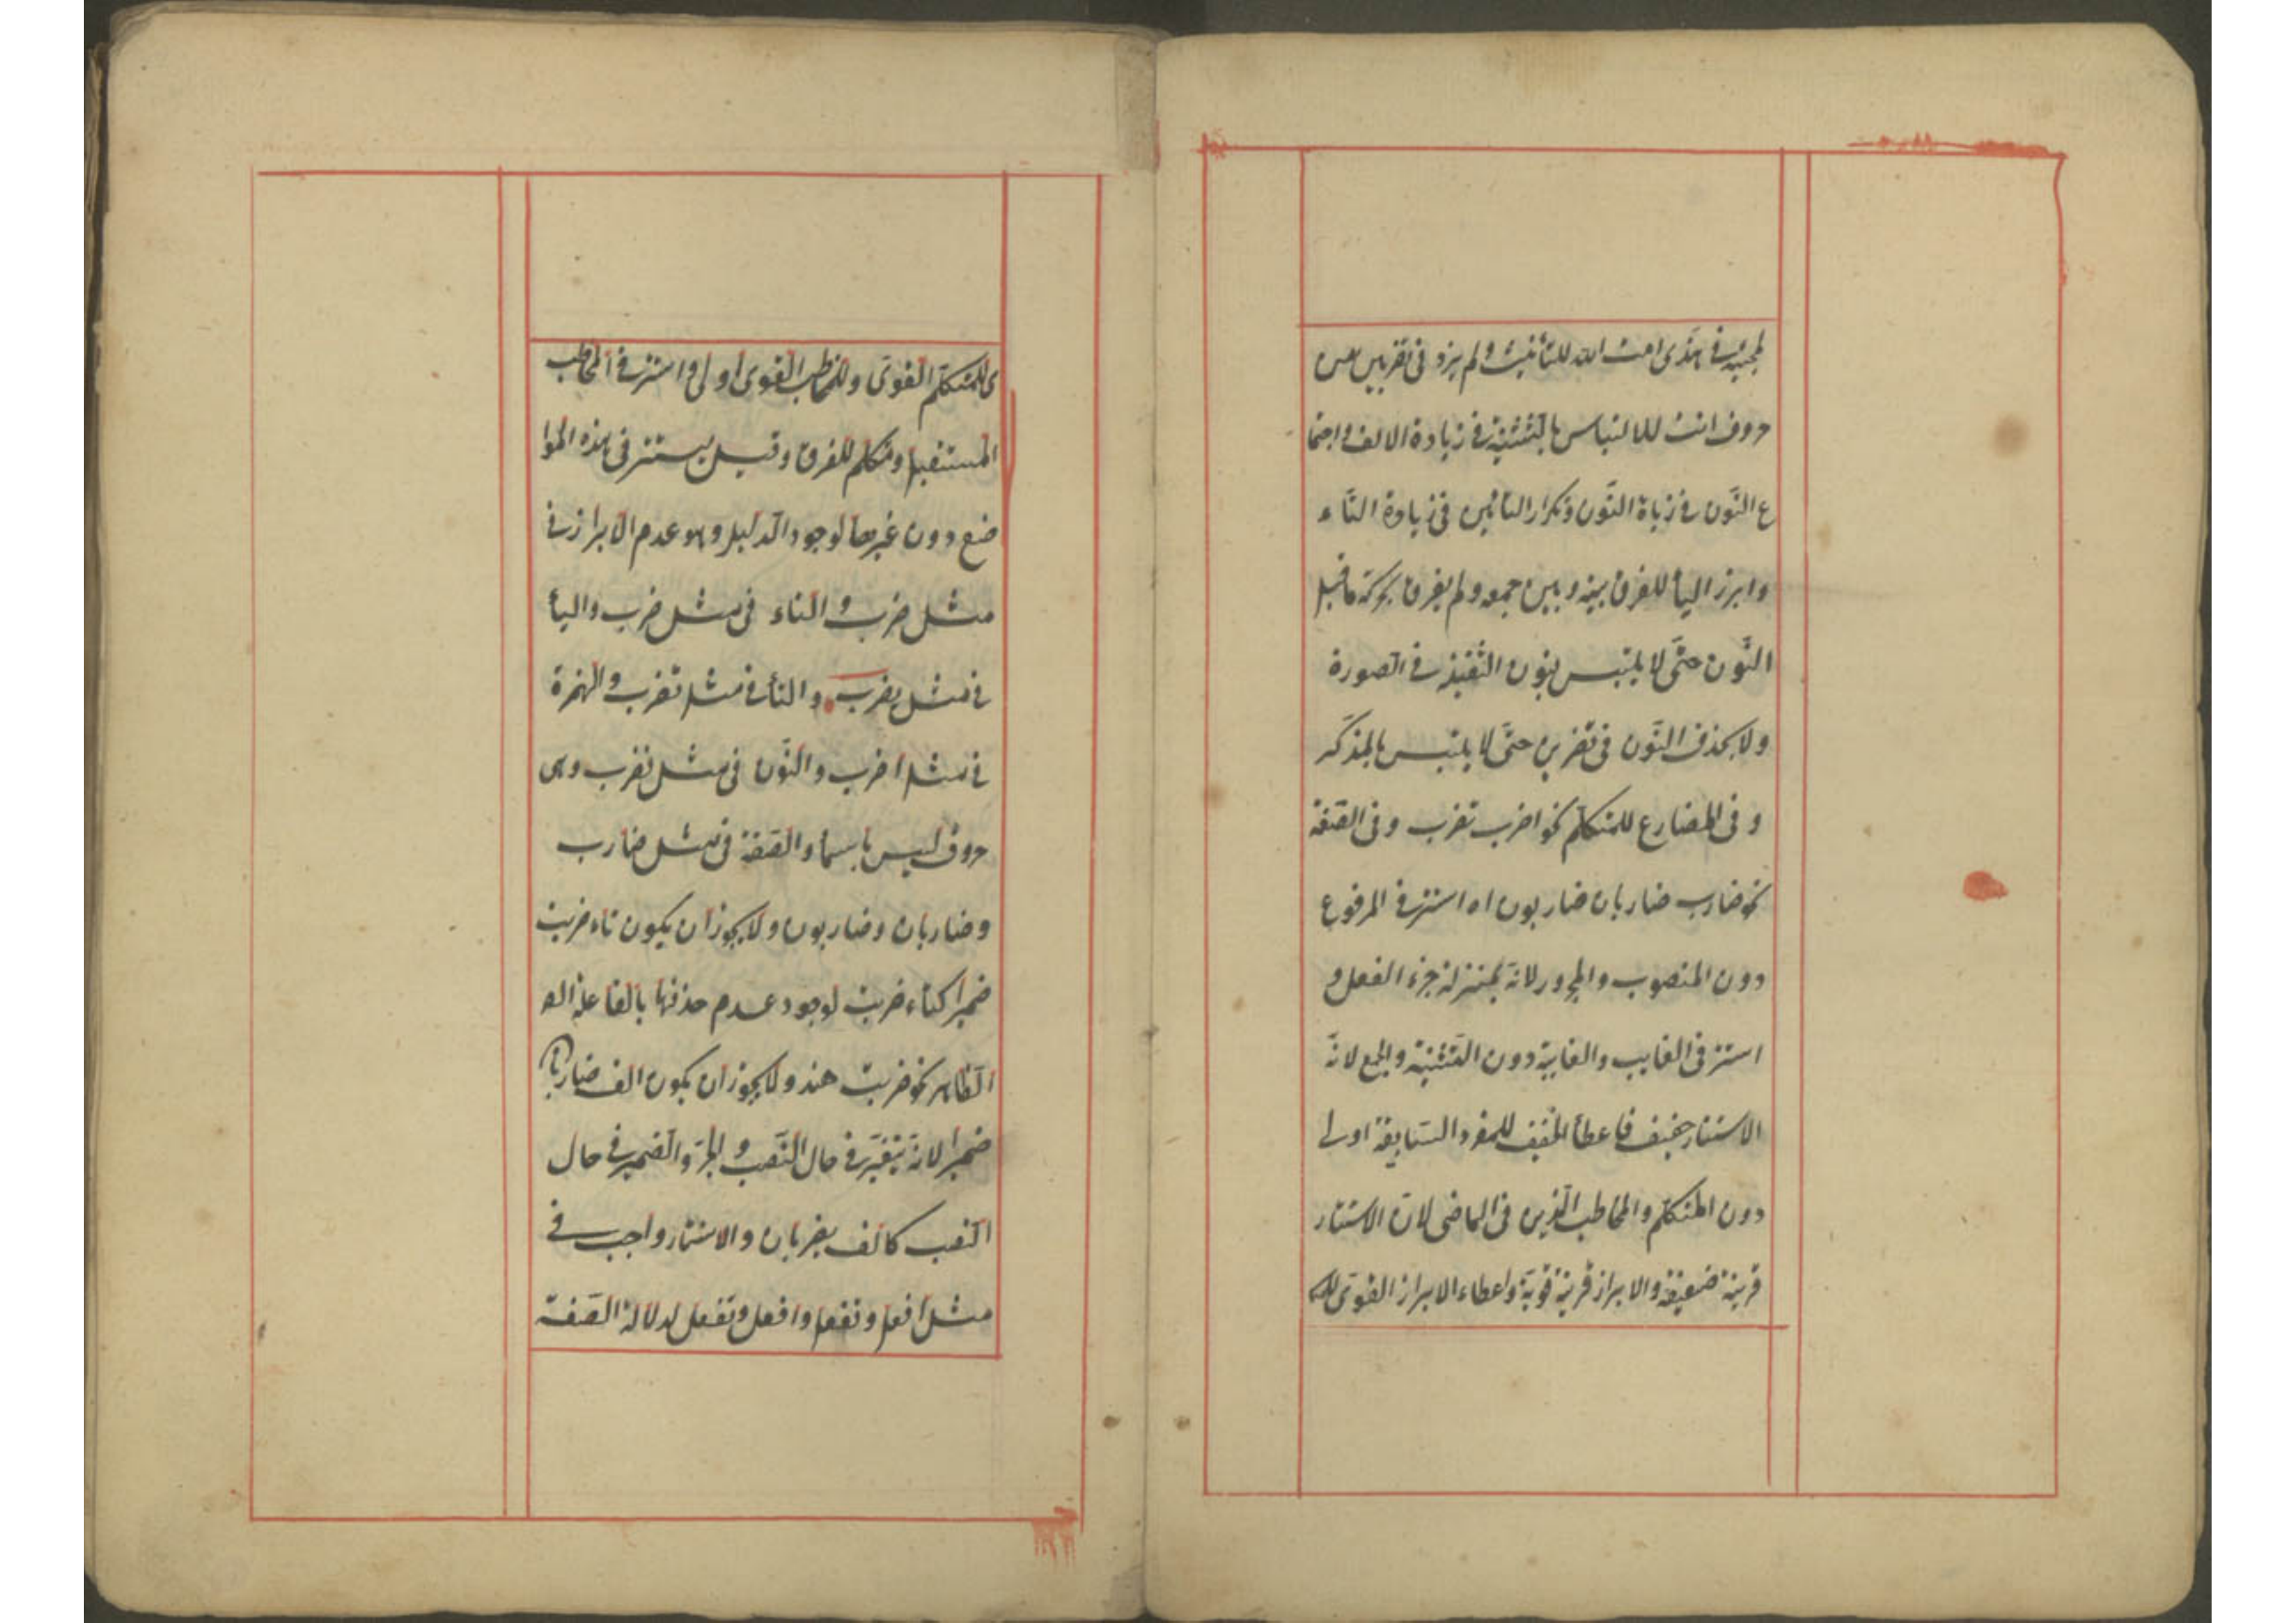 لمجيئه في هذى امة الله للتأنيث ولم يزد في تضربين من
حروف انت للالتباس بالتثنية في زيادة الالف واجتما
ع النّون في زياة النّون وتكرار التائين في زيادة التّاء
وابرز اليأ للفرق بينه وبين جمعه ولم يفرق بحركة ماقبل
النّون حتّى لا يلتبس بنون الثقيلة في الصورة
ولا بحذف النّون في تضربين حتّى لا يلتبس بالمذكّر
وفى المضارع للمتكلّم نحو اضرب نضرب وفى الصّفة
نحو ضارب ضاربان ضاربون اه استتر في المرفوع
دون المنصوب والمجرور لانّه بمنزلة جزء الفعل و
استتر فى الغايب والغايبة دون التّثنية والجمع لانّ
الاستتار خفيف فاعطأ الخفيف للمفرد السّابقة اولى
دون المتكلّم والمخاطب الّذين فى الماضى لانّ الاستتار
قرينة ضعيفة والابراز قرينة قويّة واعطاء الابراز القوىّ
ى للمتكلّم القوىّ وللمخاطب القوى اولى واستتر في المخاطب
المستقبل ومتكلم للفرق وقيل يستتر فى هذه الموا
ضع دون غيرها لوجود الدليل وهو عدم الابراز في
مثل ضرب والتاء فى مثل ضربت واليأ
في مثل يضرب والتأ في مثل تضرب والهمزة
في مثل اضرب والنّون فى مثل نضرب وهى
حروف ليس باسماء والصّفة فى مثل ضارب
وضاربان وضاربون ولا يجوز ان يكون تاء ضربت
ضميرا كتاء ضربت لوجود عدم حذفها بالفاعلة الظ
الظّاهر نحو ضربت هند ولا يجوز ان يكون الف ضاربان
ضميرا لانّه يتغيّر في حال النّصب والجرّ والضمير في حال
النصب كالف يضربان والاستتار واجب في
مثل افعل وتفعل وافعل ونفعل لدلالة الصّفة